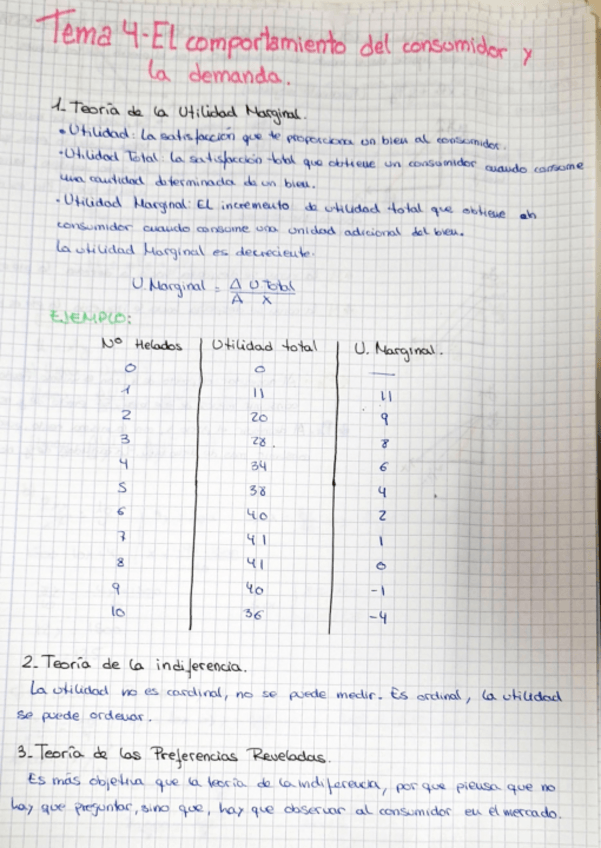 Tema 4-El comportamiento del consumidor y
la demanda.
1- Teoría de la Utilidad Marginal.
• Utilidad: La satisfacción que te proporciona un bien al consumidor.
• Utilidad Total: La satisfacción total que obtiene un consumidor cuando consume
una cantidad determinada de un bien.
• Utilidad Marginal: El incremento de utilidad total que obtiene un
consumidor cuando consume una unidad adicional del bien.
La utilidad Marginal es decreciente.
U. Marginal = Δ U Total
Δ X
EJEMPLO:
Nº Helados | Utilidad total | U. Marginal.
0 0 —
1 11 11
2 20 9
3 28. 8
4 34 6
5 38 4
6 40 2
7 41 1
8 41 0
9 40 -1
10 36 -4
2- Teoría de la indiferencia.
La utilidad no es cardinal, no se puede medir. Es ordinal, la utilidad
se puede ordenar.
3- Teoría de las Preferencias Reveladas.
Es más objetiva que la teoría de la indiferencia, por que piensa que no
hay que preguntar, sino que, hay que observar al consumidor en el mercado.